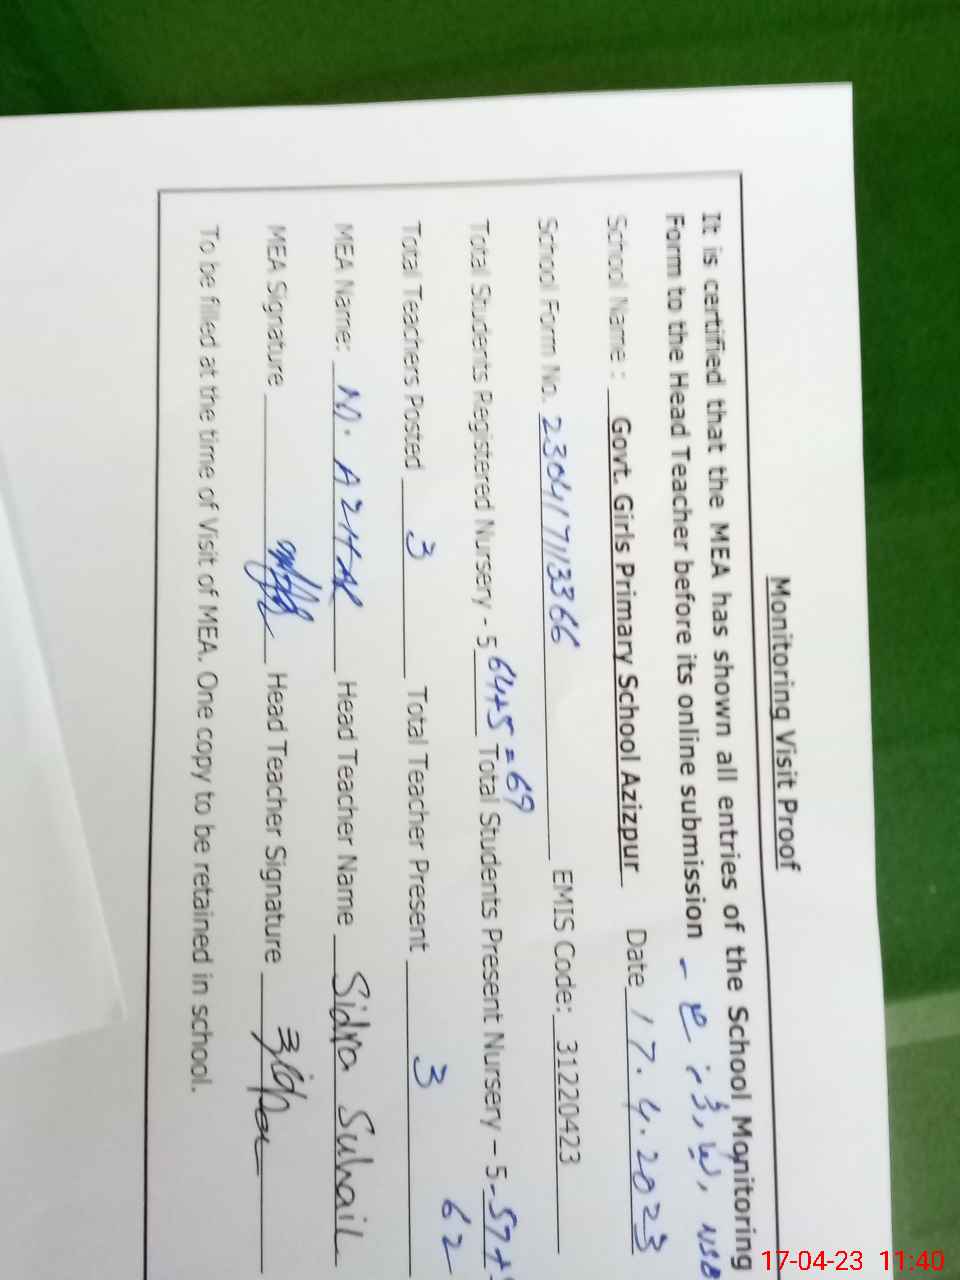 Monitoring Visit Proof
It is certified that the MEA has shown all entries of the School Monitoring
Form to the Head Teacher before its online submission
School Name : Govt. Girls Primary School Azizpur Date 17.4.2023
School Form No. 230417113366 EMIS Code: 31220423
Total Students Registered Nursery - 5 64+5=69 Total Students Present Nursery – 5 - 57+
62
Total Teachers Posted 3 Total Teacher Present 3
MEA Name: M. AZHAR Head Teacher Name Sidra Suhail
MEA Signature Head Teacher Signature
To be filled at the time of Visit of MEA. One copy to be retained in school.
17-04-23 11:40